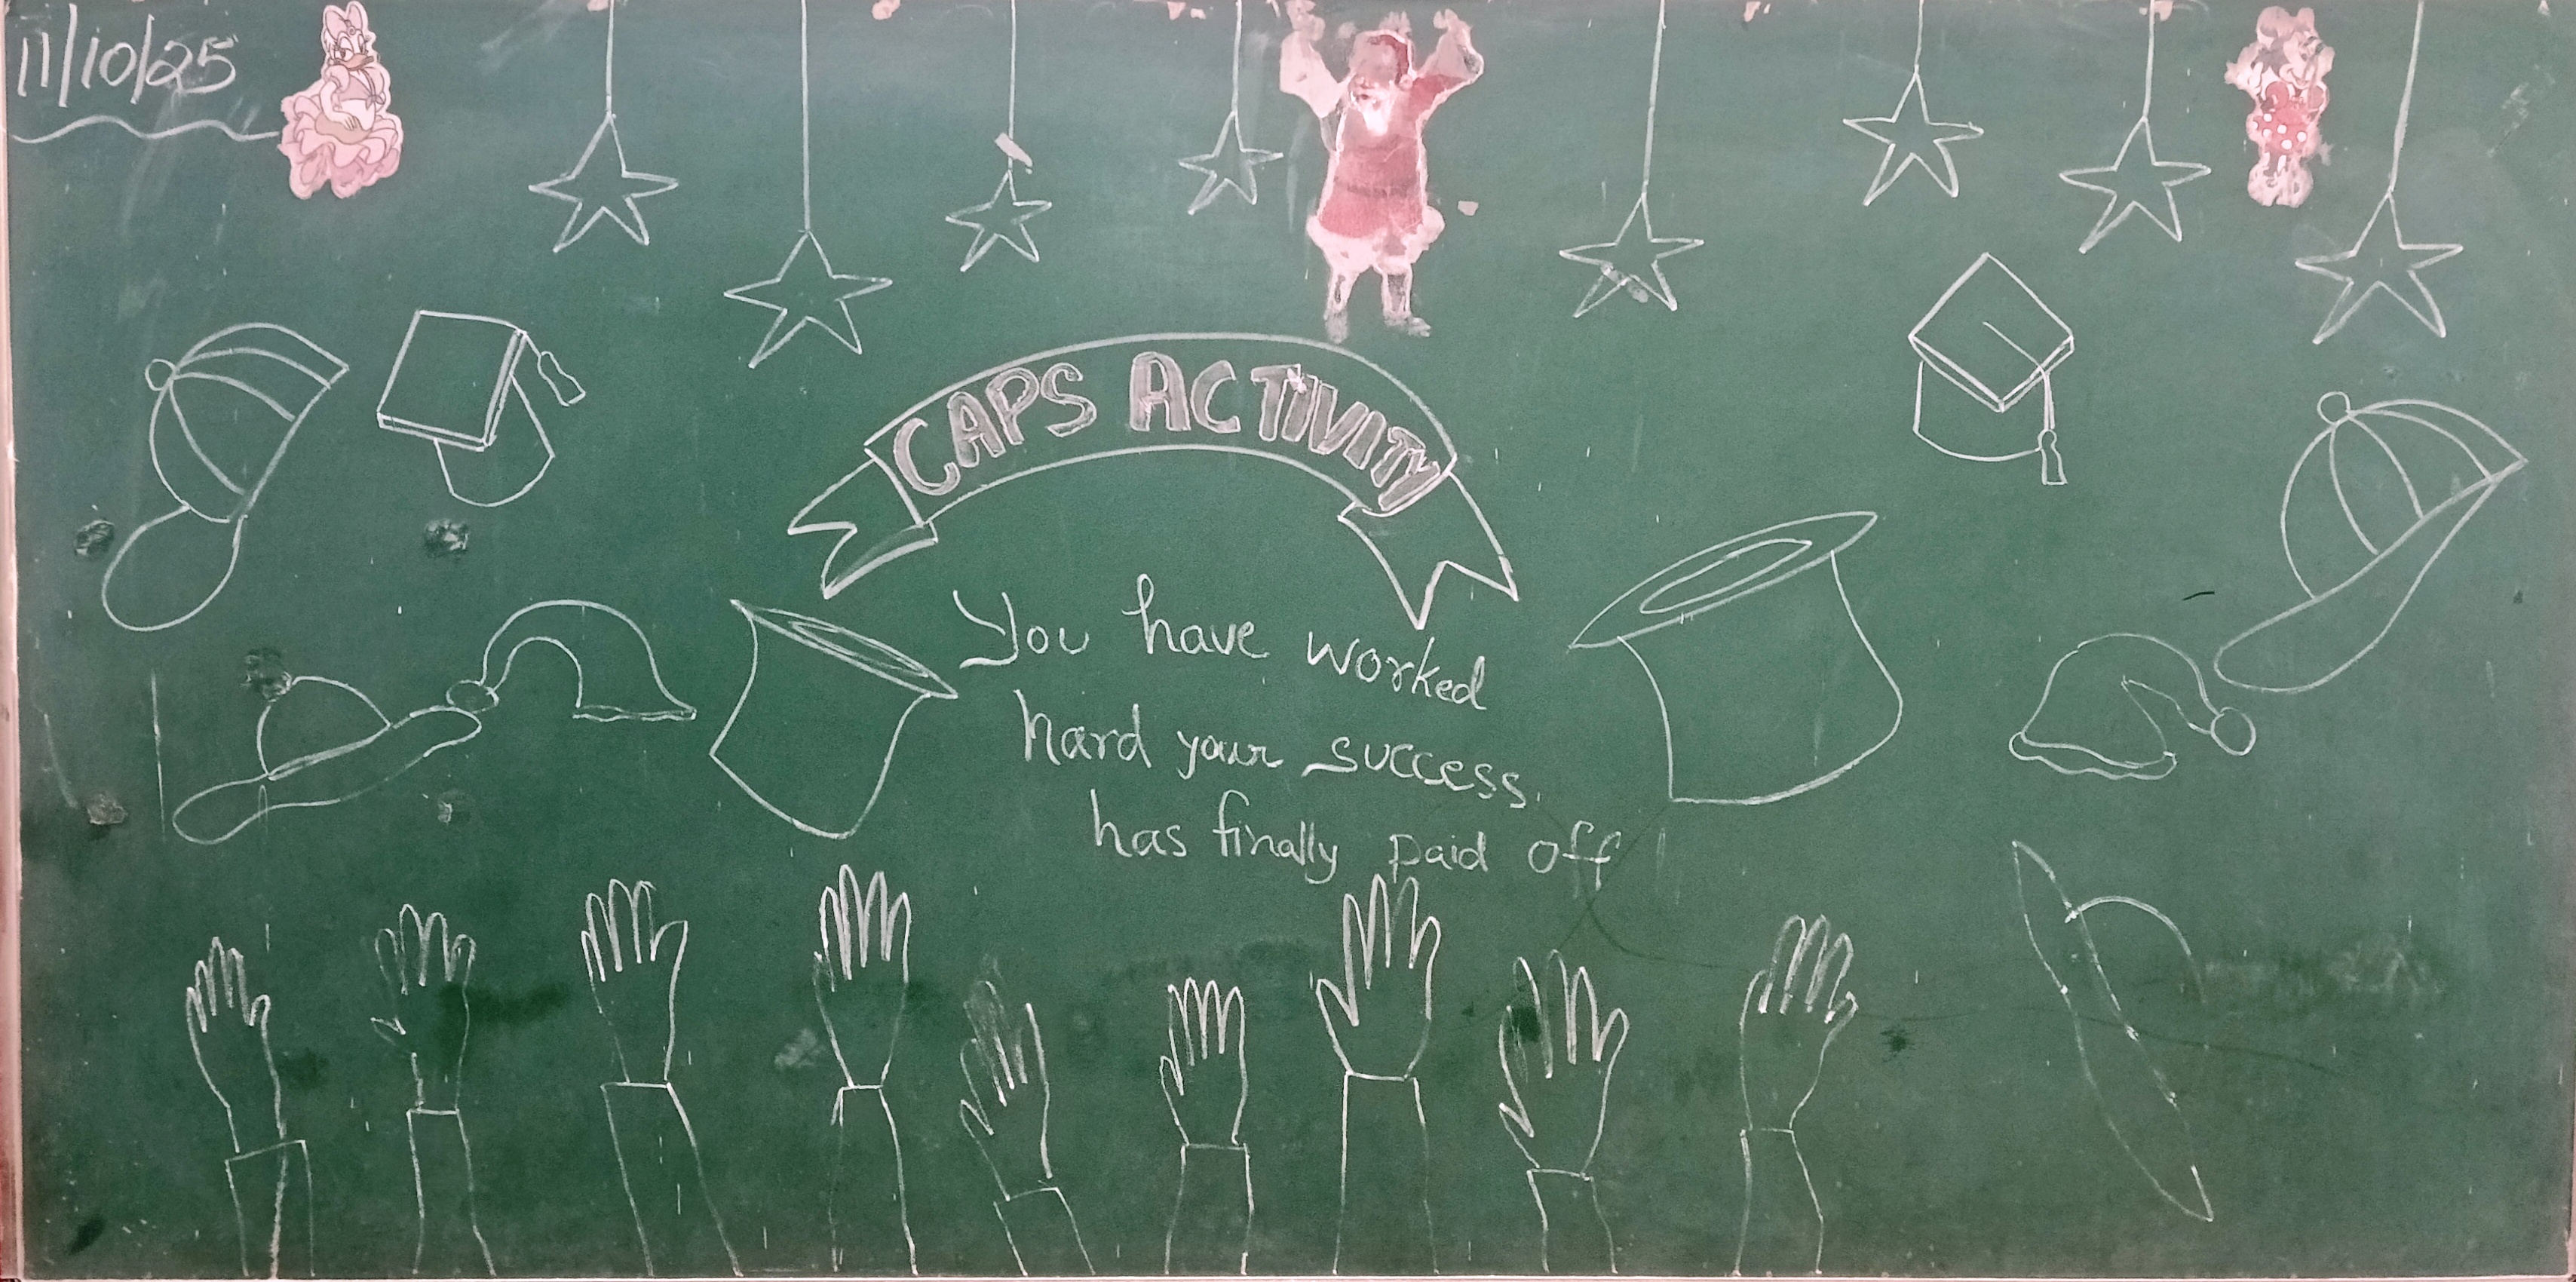 11/10/25
CAPS ACTIVITY
You have worked
hard your success
has finally paid off